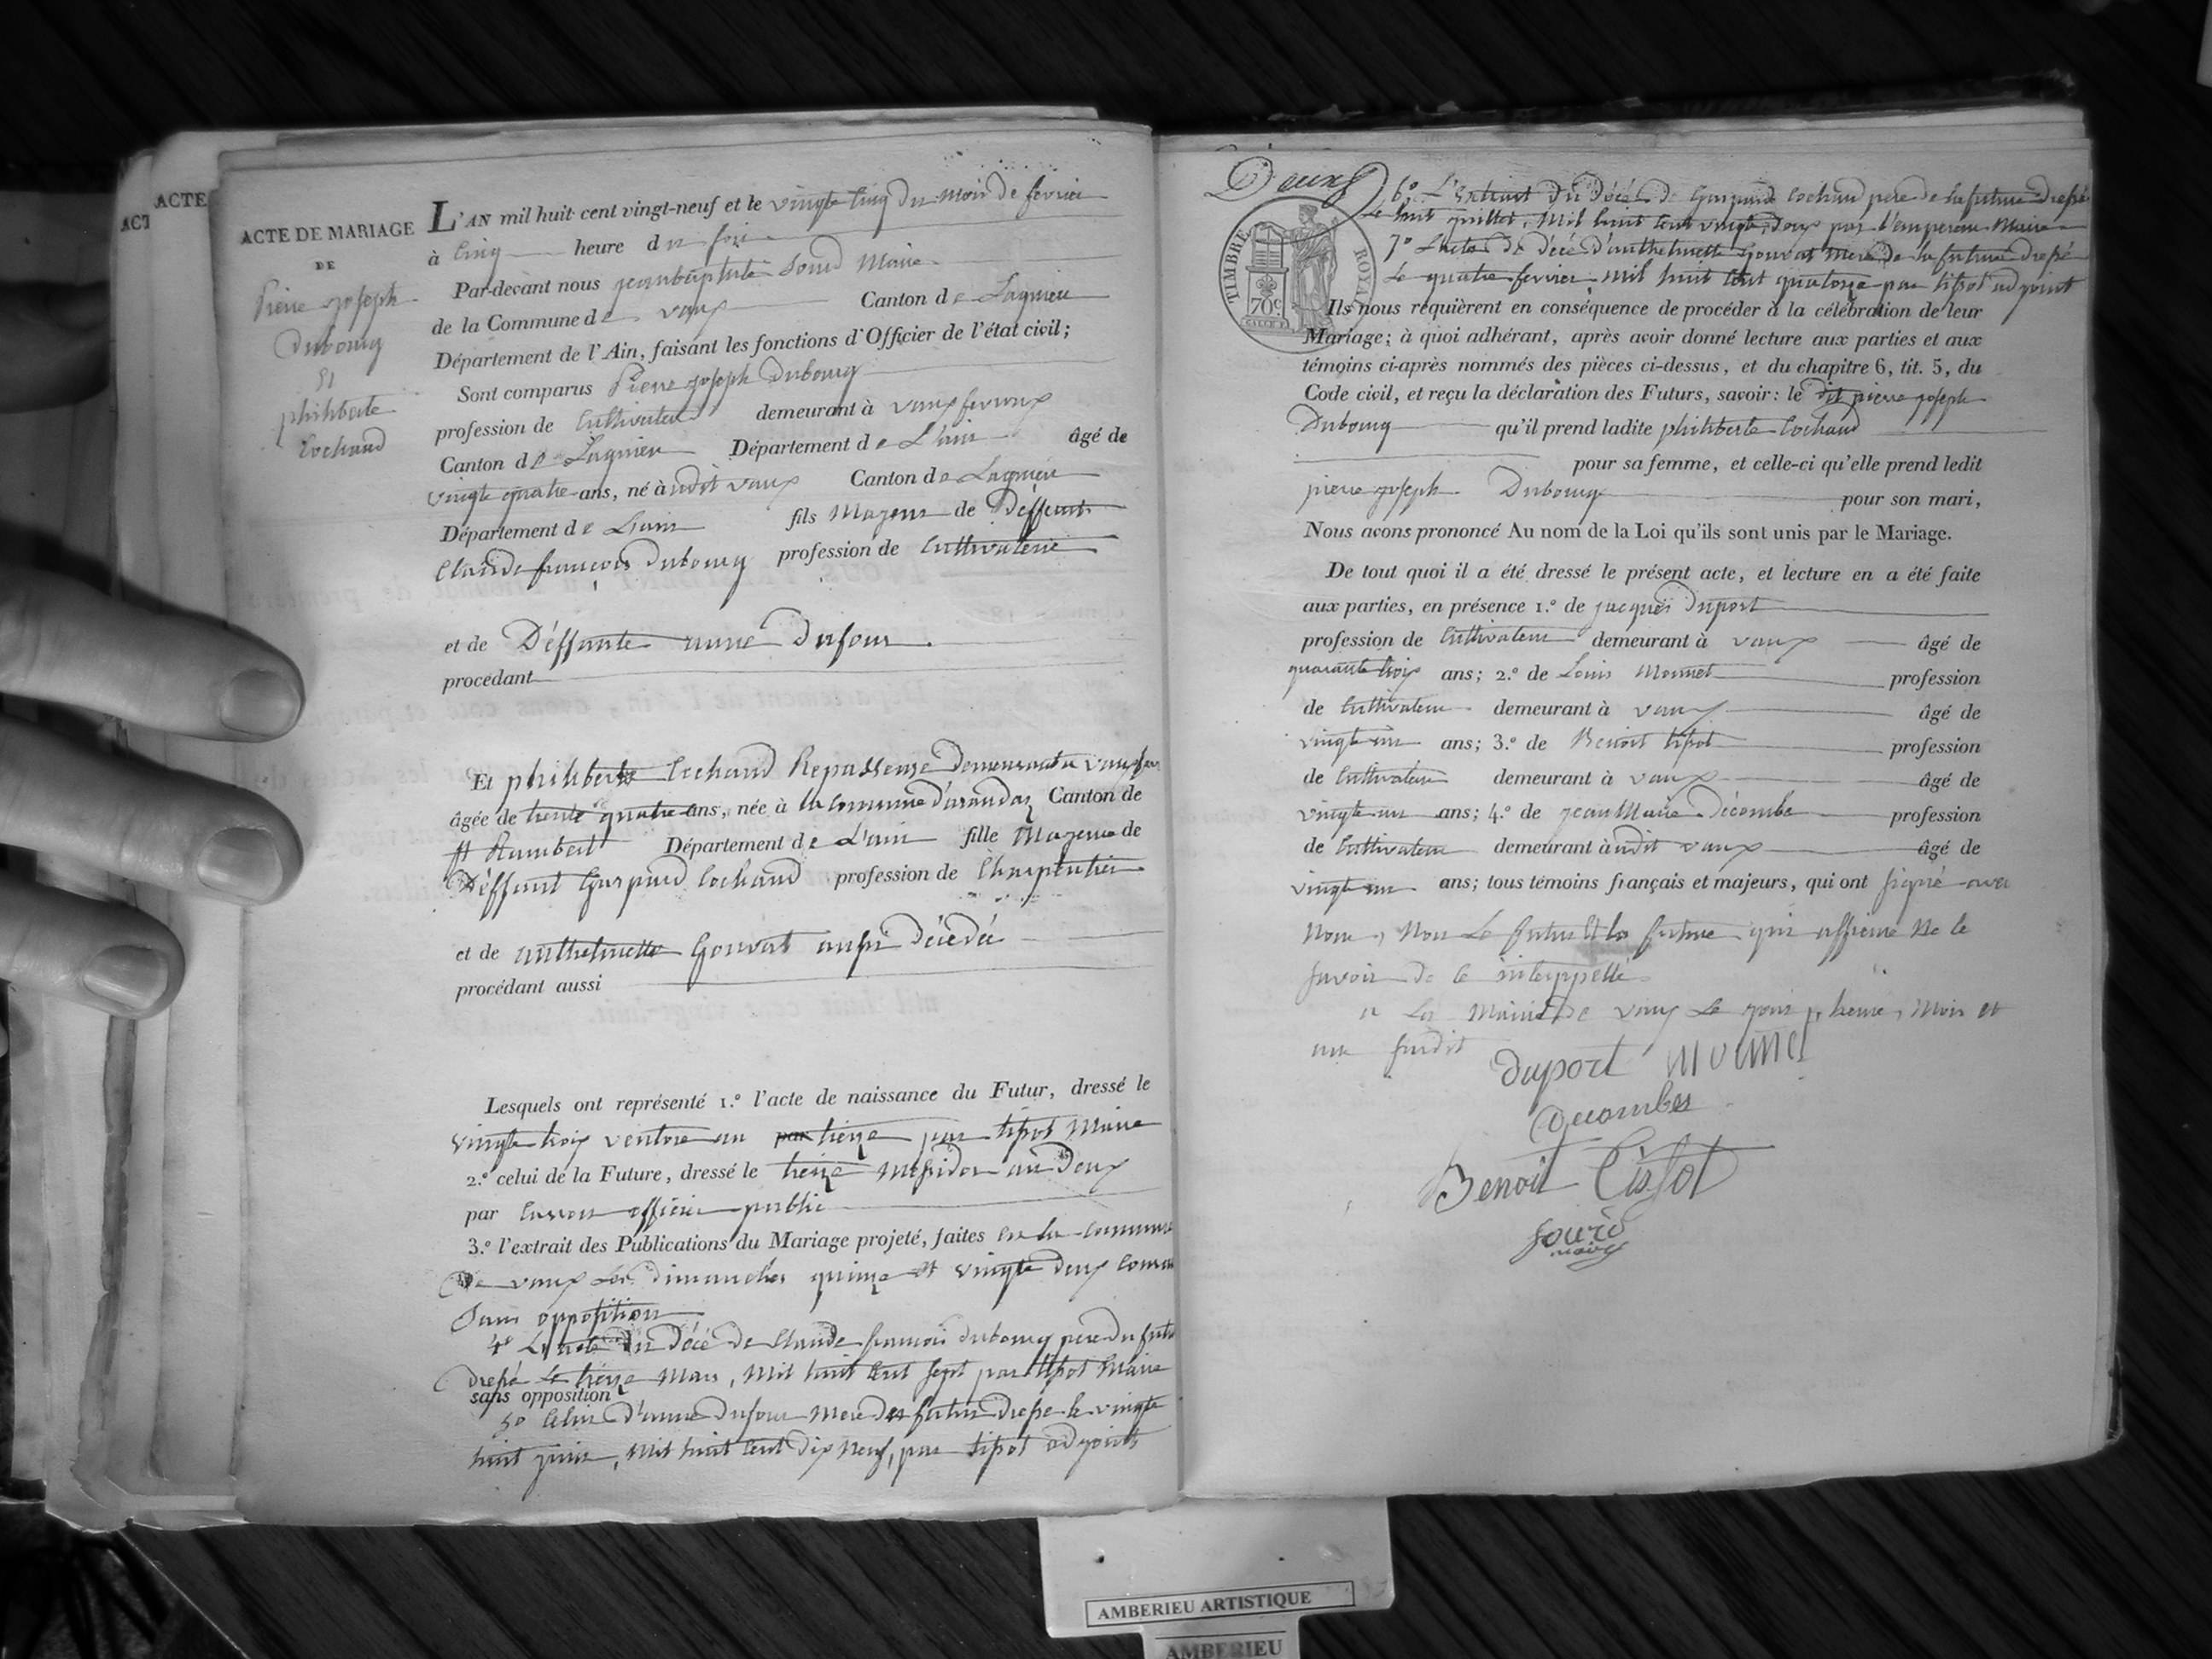 ACTE
ACT
ACTE DE MARIAGE
DE
Pierre joseph
Dubourg
Et
philiberte
Cochand
L'AN mil huit cent vingt-neuf et le vingte cinq du mois de fevrier
à Cinq heure du soir
Par-devant nous jeanbaptiste Sourd Maire
de la Commune de vaux Canton de Lagnieu
Département de l'Ain, faisant les fonctions d'Officier de l'état civil;
Sont comparus Pierre joseph Dubourg
profession de Cultivateur demeurant à vaux fevroux
Canton de Lagnieu Département de L'ain âgé de
vingte quatre ans, né à udit vaux Canton de Lagnieu
Département de L'ain fils Majeur de Déffunt
Claude françois Dubourg profession de Cultivaterie
et de Déffunte anne Dufour
procédant
Et philiberte Cochand Repasseuse Demeurant a vaux
âgée de trente quatre ans, née à la Commune d'arandas Canton de
St Rambert Département de L'ain fille Majeure de
Déffunt Gaspard Cochand profession de Charpentier
et de anthelmette Gouvat aussi décédée
procédant aussi
Lesquels ont représenté 1.º l'acte de naissance du Futur, dressé le
vingte trois ventose an par treize par tissot Maire
2.º celui de la Future, dressé le treize Messidor an Deux
par officier public
3.º l'extrait des Publications du Mariage projeté, faites en la Commune
De vaux Les dimanches quinze et vingte deux
Sans opposition
4º L'acte du décé de Claude francois dubourg pere du futur
dressé Le treize Mars, Mil huit Cent Sept par tissot Maire
sans opposition
5º Celui d'anne Dufour Mere du futur dressé le vingte
huit juin, Mil huit Cent Dix Neuf, par tissot adjoint
Deux
6º L'Extrait du Décé de Gaspard Cochand pere de la future dressé
Le huit juillet, Mil huit Cent vingte Deux par Maire
7º L'acte de décé d'anthelmette Gouvat Mere de la future dressé
Le quatre fevrier, Mil huit Cent quatorze par tissot adjoint
TIMBRE ROYAL
70 C
Ils nous requièrent en conséquence de procéder à la célébration de leur
Mariage; à quoi adhérant, après avoir donné lecture aux parties et aux
témoins ci-après nommés des pièces ci-dessus, et du chapitre 6, tit. 5, du
Code civil, et reçu la déclaration des Futurs, savoir: le dit pierre joseph
Dubourg qu'il prend ladite philiberte Cochand
pour sa femme, et celle-ci qu'elle prend ledit
pierre joseph Dubourg pour son mari,
Nous avons prononcé Au nom de la Loi qu'ils sont unis par le Mariage.
De tout quoi il a été dressé le présent acte, et lecture en a été faite
aux parties, en présence 1.º de jacques Duport
profession de Cultivateur demeurant à vaux âgé de
quarante trois ans; 2.º de Louis Monnet profession
de Cultivateur demeurant à vaux âgé de
vingte un ans; 3.º de Benoit tissot profession
de Cultivateur demeurant à vaux âgé de
vingte un ans; 4.º de jean Marie Décombe profession
de Cultivateur demeurant à udit vaux âgé de
vingte un ans; tous témoins français et majeurs, qui ont signé avec
Nous, Non Le futur Et la future qui affirme Ne le
savoir de ce interppellé
a La Mairie De vaux Le jour, heure, Mois et
an susdit
duport monnet
Decombes
Benoit Tissot
sourd
maire
AMBERIEU ARTISTIQUE
AMBERIEU